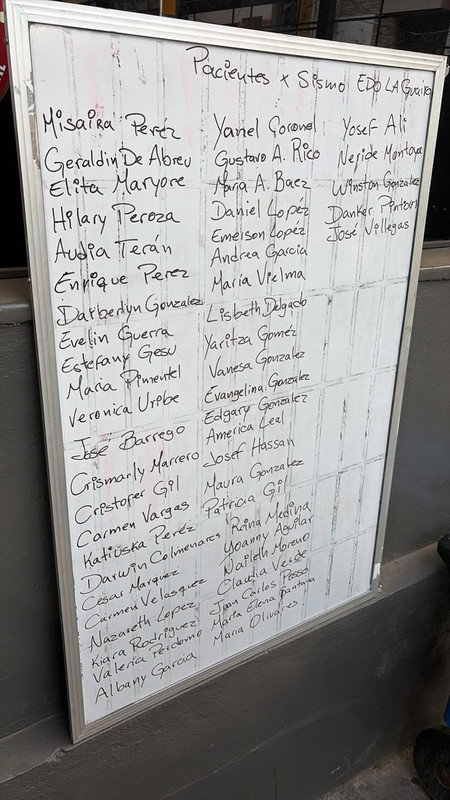 Pacientes x Sismo EDO LA Guaira
Misaira Peréz
Geraldin De Abreu
Elita Maryore
Hilary Peroza
Audia Terán
Enrique Perez
Darberlyn Gonzalez
Evelin Guerra
Estefany Gesu
Maria Pimentel
Veronica Uribe
José Barrego
Crismarly Marrero
Cristofer Gil
Carmen Vargas
Katiuska Peréz
Darwin Colmenares
Cesar Marquez
Carmen Velasquez
Nazareth Lopez
Kiara Rodriguez
Valeria Perdomo
Albany Garcia
Yanel Coronel
Gustavo A. Rico
Maria A. Baez
Daniel Lopéz
Emerson Lopéz
Andrea Garcia
Maria Vielma
Lisbeth Delgado
Yaritza Goméz
Vanesa Gonzalez
Evangelina Gonzalez
Edgary Gonzalez
America Leal
Josef Hassan
Maura Gonzalez
Patricia Gil
Reina Medina
Yoanny Aguilar
Naileth Moreno
Claudia Verde
Juan Carlos Posso
Maria Elena Santana
Maria Olivares
Yosef Ali
Nejide Montoya
Winston Gonzalez
Danker Pinto
José Villegas